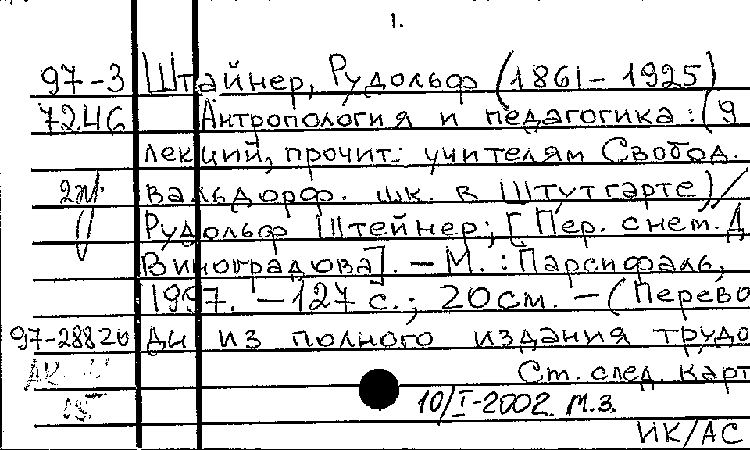 1.
97-3 Штайнер, Рудольф (1861-1925)
7246 Антропология и педагогика: (9
лекций, прочит. учителям Свобод.
2эк. вальдорф. шк. в Штутгарте) /
Рудольф Штейнер; [Пер. с нем. Д
Виноградова]. - М.: Парсифаль,
1997. - 127 с.; 20см. - (Перево
97-28820 ды из полного издания трудо
Ст. след. карт
10/I-2002. М.З.
ИК/АС